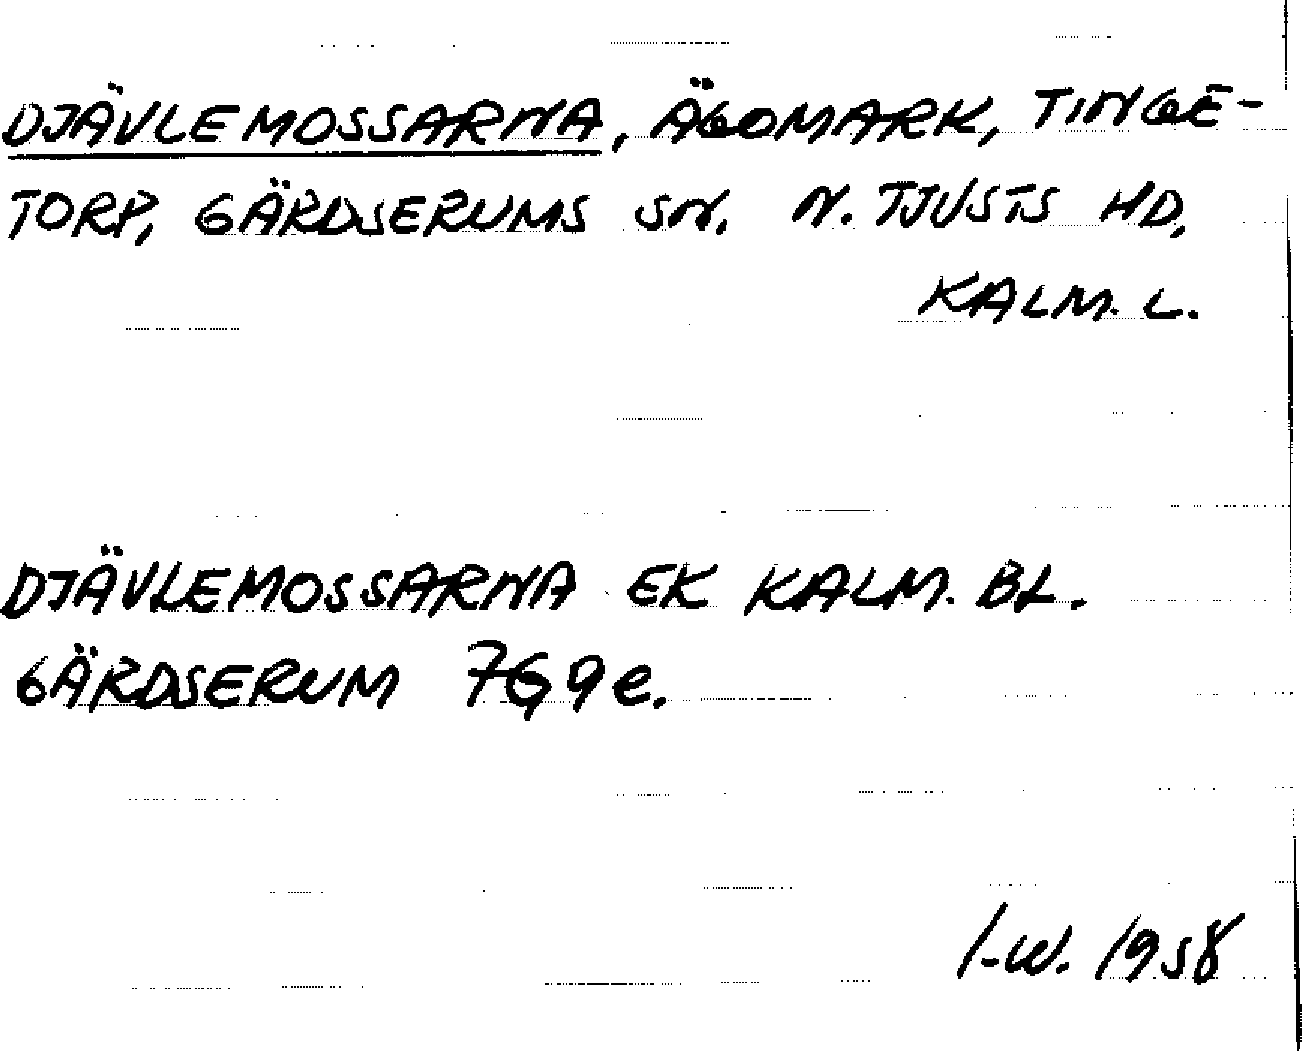 DJÄVLEMOSSARNA, ÄGOMARK, TINGE-
TORP, GÄRDSERUMS SN. N. TJUSTS HD,
KALM. L.
DJÄVLEMOSSARNA EK KALM. BL.
GÄRDSERUM 7G9e.
I-W. 1958